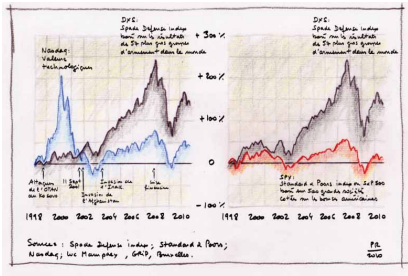 DXS:
Spade Defense index
basé sur les résultats
de 54 plus gros groupes
d'armement dans le monde
Nasdaq:
Valeurs
technologiques
+300%
+200%
+100%
0
-100%
Attaque
de l'OTAN
au Kosovo
11 Sept
2001
Invasion de
l'Afghanistan
Invasion de
l'Irak
Crise
financière
1998 2000 2002 2004 2006 2008 2010
DXS:
Spade Defense index
basé sur les résultats
de 54 plus gros groupes
d'armement dans le monde
SPX:
Standard & Poors index ou S&P 500
basé sur 500 grandes sociétés
cotées sur les bourses américaines
1998 2000 2002 2004 2006 2008 2010
Sources: Spade Defense index; Standard & Poors;
Nasdaq; Luc Mampaey, GRIP, Bruxelles.
PR
2010